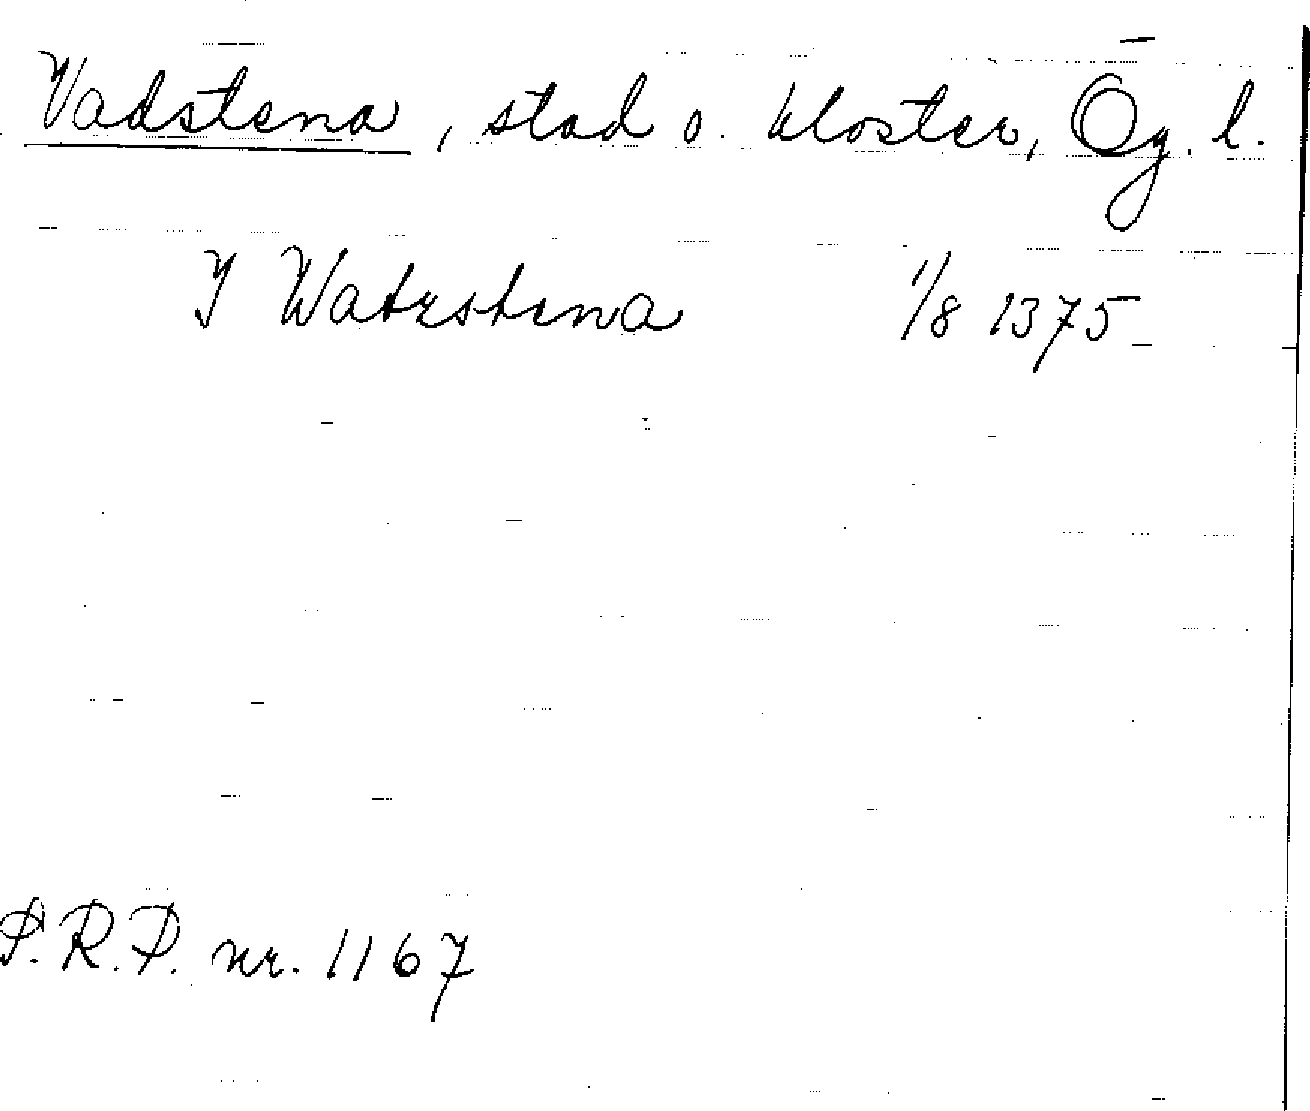 Vadstena, stad o. kloster, Ög. l.
I Watzstena 1/8 1375
P.R.P. nr. 1167